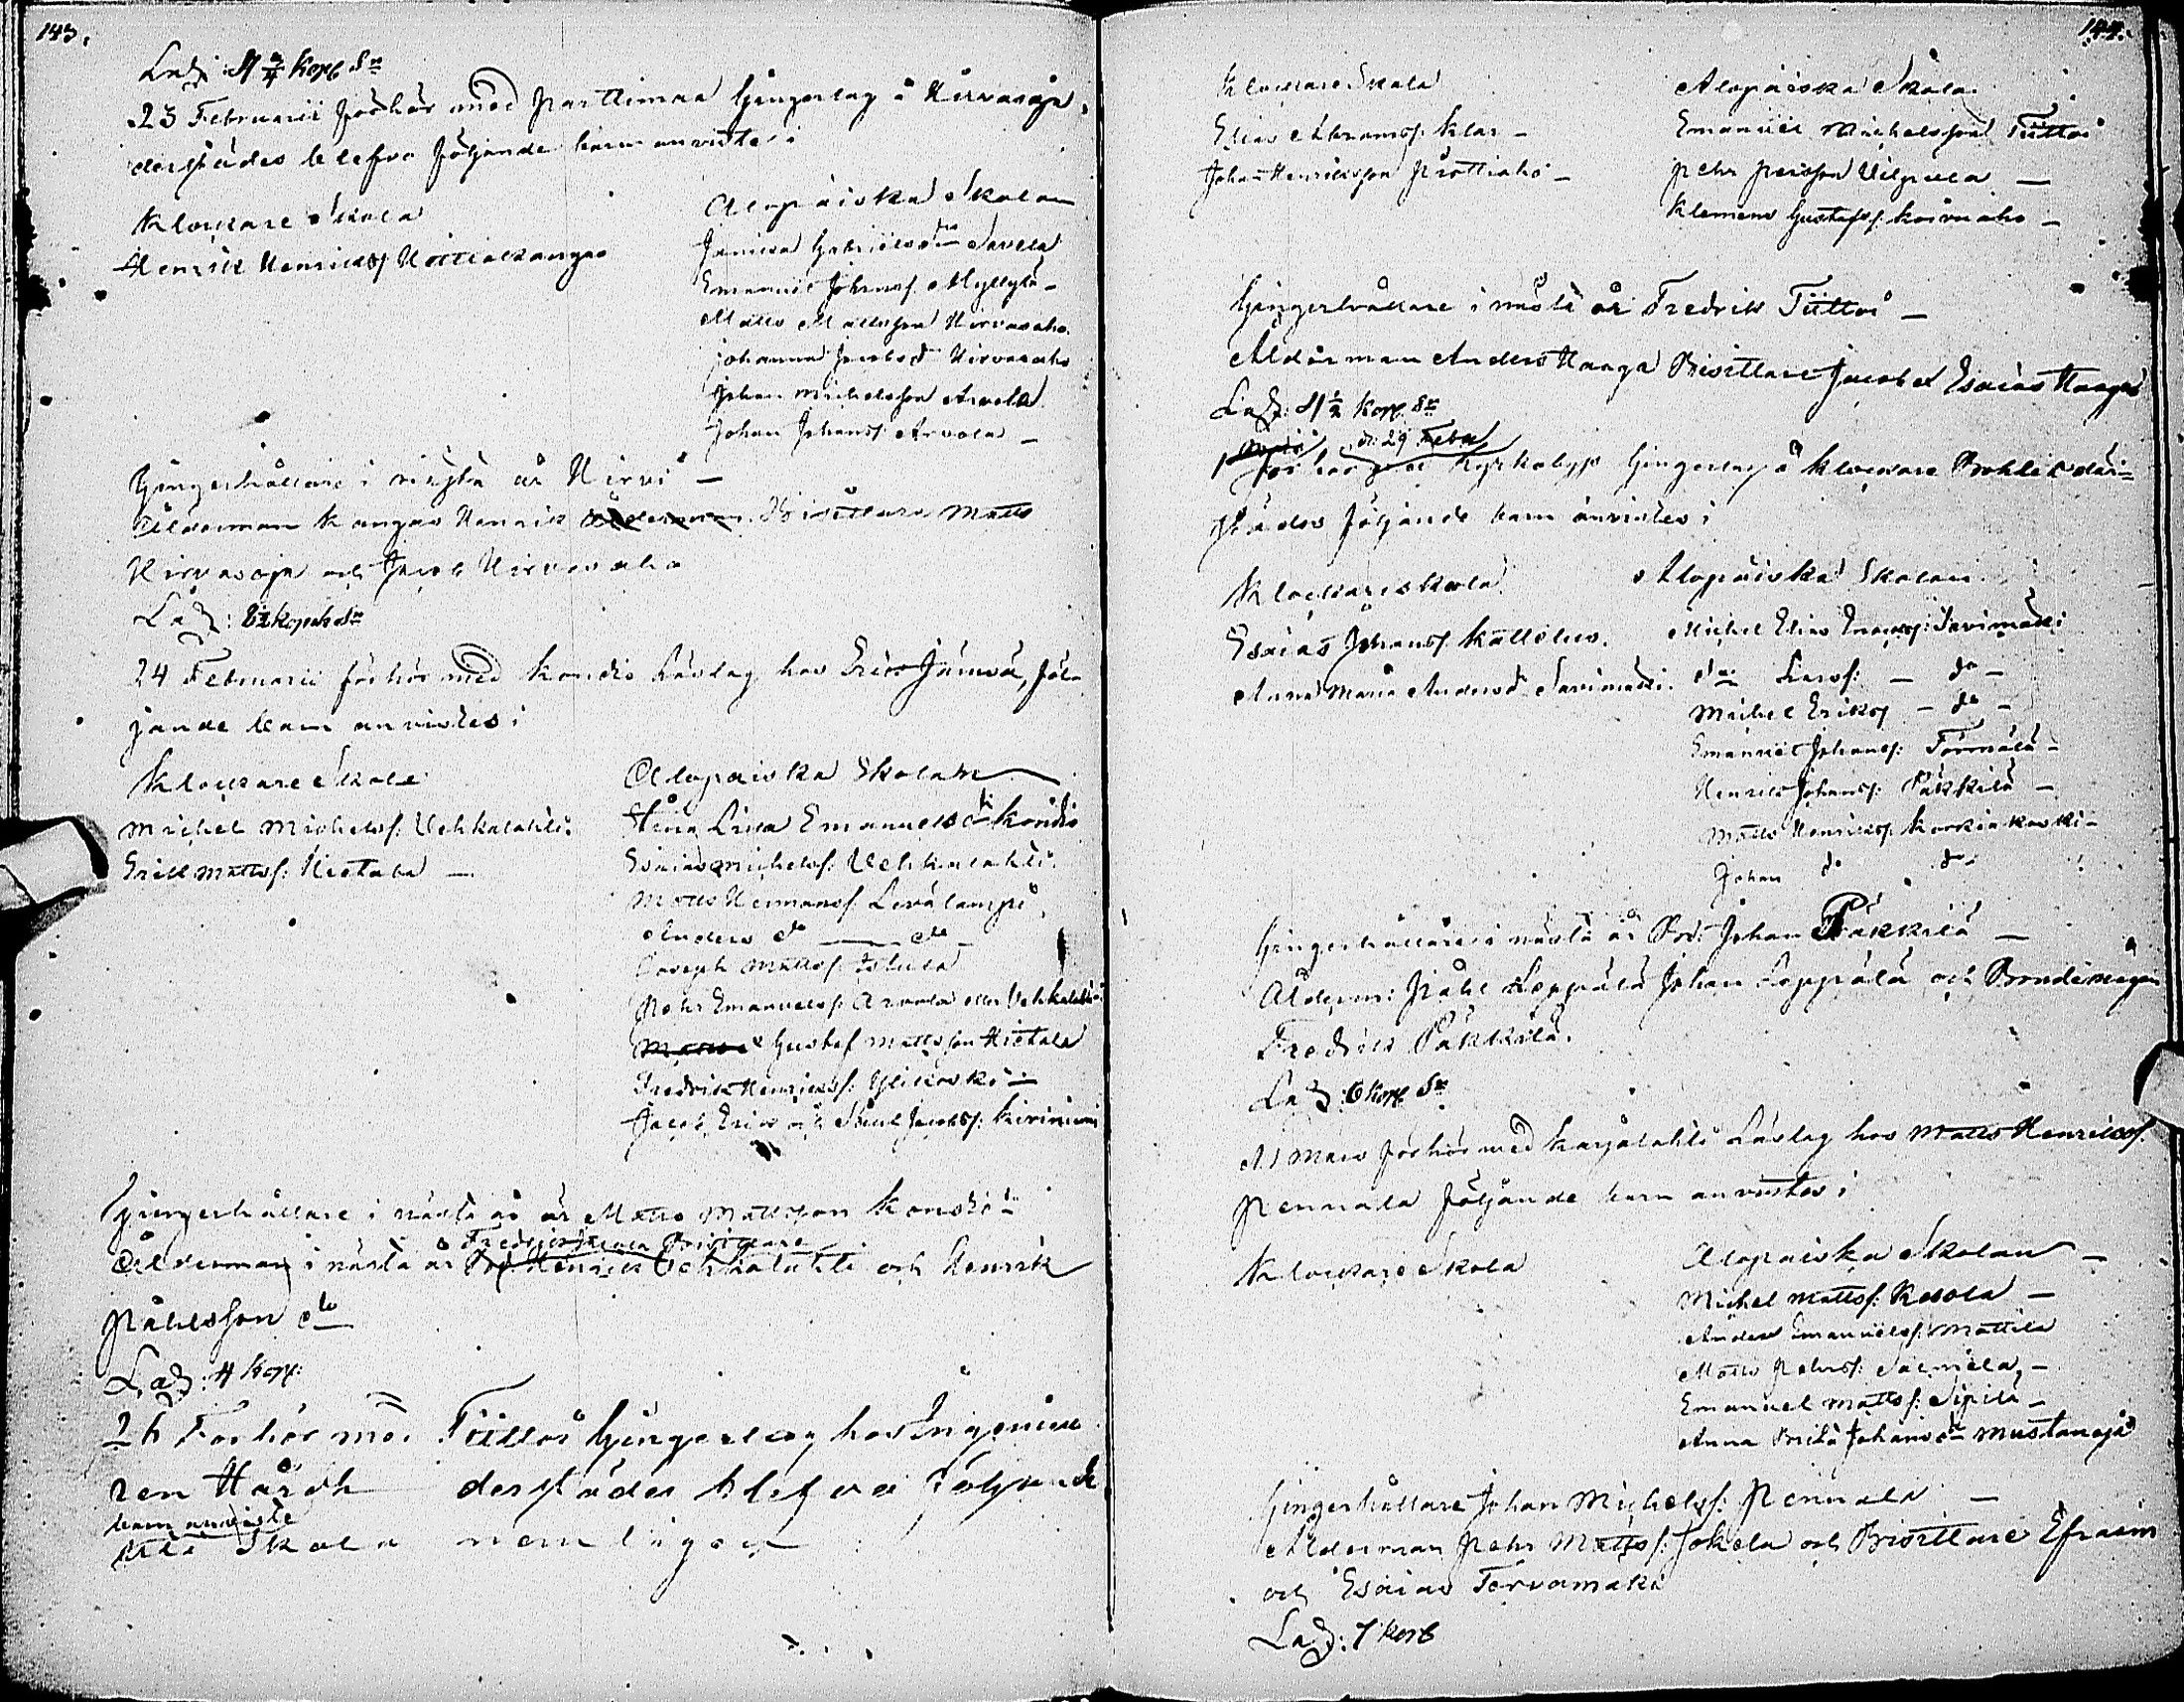 143.
Lad: 11 3/4 Kop Sr
23 Februarii förhör med Parttimaa Gingerlag å Hirvasoja,
derstädes blefvo följande barn anviste i
Klockare Skola
Henrik Henrikss. Hottialkangas
Alapäiska Skolan
Gabrielsdr Savela
Emanuel Johanss. Myllylä –
Matts Mattsson Hirvasaho
Johanna Jacobsdr Hirvasaho
Johan Michelsson Arvola
Johan Johanss. Arvola –
Gingerhållare i nästa år Hirvi –
Ålderman Kangas Henrik Bisittare Matts
Hirvasoja och Jacob Hirvasaho
Lad: Kopek Sr
24 Februarii förhör med Kondis Läslag hos Eric Jämsä, föl-
jande barn anvistes i
Klockare Skola
Michel Michelss. Vehkalahti
Erik Mattss. Hietala –
Alapaiska Skolan
Stina Lisa Emanuelsdr Kondis
Esaias Michelss. Vehkalahti
Matts Hermanss. Levälampi
Anders do — do
Joseph Mattss.
Pehr Emanuelss. Arvola eller Vehkalahti
Gustaf Mattsson Hietala
Fredrik Henrikss. Ylikoski –
Jacob Eric och Paul Jacobss. Kiviniemi
Gingerhållare i nästa år är Matts Mattsson Kondis
Fredric Bisittare
Ålderman i nästa år Henrik Vehkalahti och Henrik
Påhlsson do
Lad: 4 Kop:
26 Förhör med Tiittos Gingerlag hos Ingenieu
ren Hårdh derstädes blefvo följande
barn anviste
till Skola nemligen
144.
Klockare Skola
Elias Abramss. Klas –
Johan Henriksson Prottiaho –
Alapäiska Skola
Emanuel Michelsson Tiitto
Pehr Persson Vilpula –
Klemens Gustafss. Koivuaho –
Gingerhållare i nästa år Fredrik Tiitto –
Ålderman Anders Haaga Bisittare Jacob et Esaias Haaga
Lad: 11 1/2 Kop. Sr
d. 29 Febr
förhör med Kyrkobyss Gingerlag å Klockare Bohle där-
städes följande barn anvistes i
Klockareskola
Esaias Johanss. Källölus.
Anna Maria Andersdr Savimäki.
Alapäiska Skolan
Michel Elias Savimäki
do Larss: – do –
Michel Erikss – do –
Emanuel Johanss: Törmälä –
Henrik Johanss: Päkkilä –
Matts Henrikss. Korkiakoski –
Johan do do
Gingerhållare i nästa år Bd: Johan Päkkilä –
Ålderm: Påhl Leppälä Johan Leppälä och Bondemågen
Fredrik Päkkilä.
Lad: 6 Kop Sr
d. 1 Mars förhör med Karjalahti Läslag hos Matts Henrikss.
Pennala följande barn anvistes i
Klockare Skola
Alapaiska Skolan –
Michel Mattss: Kesola –
Anders Emanuelss: Mattila
Matts Pehrss: Salmela, –
Emanuel Mattss: Sipilä –
Anna Brita Johansdr Mustanoja
Gingerhållare Johan Michelss: Pennala –
Ålderman Pehr Mattss: Jokela och Bisittare Efraim
och Esaias Tervamäki
Lad: 7 Kop